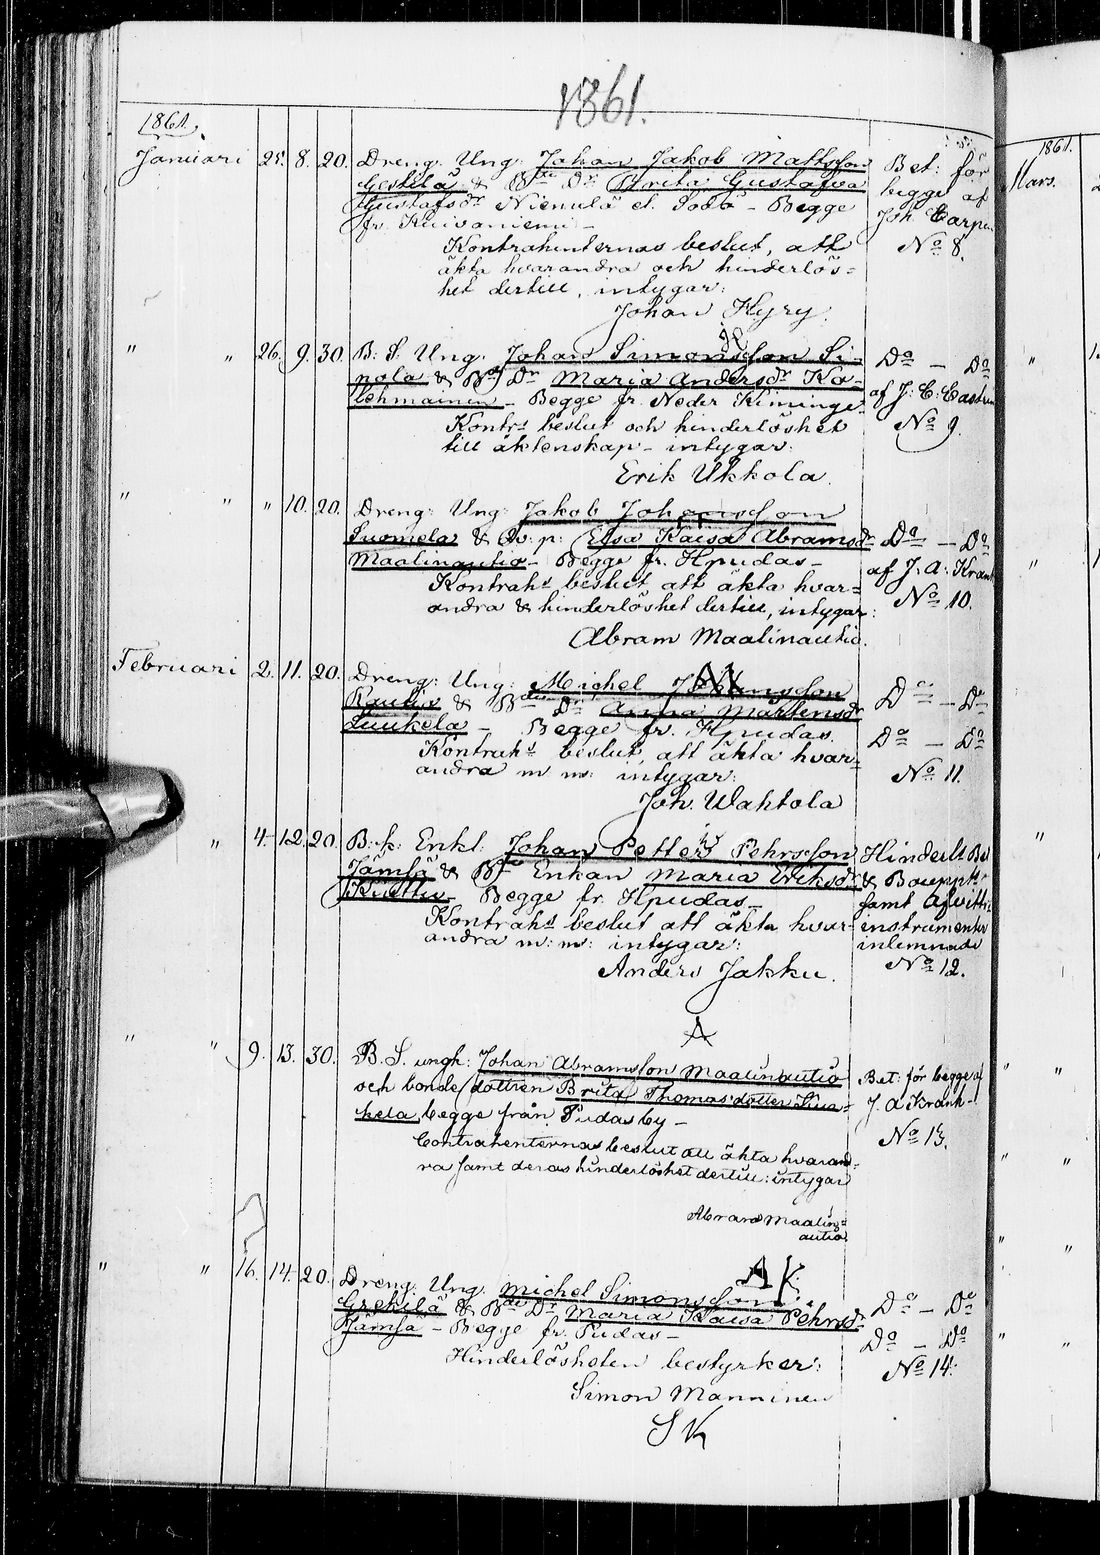 1861.
1861.
Januari 25. 8. 20. Dreng: Ung: Johan Jakob Mattsson
& Bde Dr Brita Gustafva
Gustafsdr Niemelä - Begge
fr. Kuivaniemi -
Kontrahenternas beslut, att
äkta hvarandra och hinderlös=
het dertill, intygar:
Johan Hyry.
Bet: för
begge af
Joh.
No 8.
" " 26. 9. 30. B: S. Ung. Johan Simonsson Si-
pola & Bde Dr Maria Andersdr Ko-
lehmainen - Begge fr. Neder Kiminge
Kontrs beslut och hinderlöshet
till äktenskap - intygar:
Erik Ukkola.
Do - Do
af J: E:
No 9.
" " " 10. 20. Dreng: Ung: Jakob Johansson
Suomela & Elsa Kaisa Abramsdr
Maalinautio - Begge fr. Hpudas -
Kontrahs beslut att äkta hvar=
andra & hinderlöshet dertill, intygar:
Abram Maalinautio.
Do - Do
af J: A:
No 10.
Februari 2. 11. 20. Dreng: Ung: Michel
Rautio & Bde Dr Anna Mårtensdr
Luukela - Begge fr. Hpudas.
Kontrahs beslut, att äkta hvar=
andra m. m: intygar:
Joh. Wahtola
Do - Do
Do - Do
No 11.
" 4. 12. 20. B: k: Enkl: Johan Petter Pehrsson
Jämsä & Bde Enkan Maria Eriksdr
Begge fr. Hpudas -
Kontrahs beslut att äkta hvar-
andra m: m: intygar:
Anders Jakku.
Hinderl: Bet
&
samt Afvittr:
instrumenter
inlemnade
No 12.
A
" " 9. 13. 30. B. S. ungk: Johan Abramsson Maalinautio
och bonde dottren Brita Thomasdotter Luu-
kela, begge från Pudasby -
Contrahenternas beslut att äkta hvaran=
ra samt deras hinderlöshet dertill: intygar
Abram Maalin=
autio.
Bet: för begge af
J. A Krank-
No 13.
A K
" " 16. 14. 20. Dreng: Ung: Michel Simonsson
& Bde Dr Maria Kaisa Pehrsdr
Jämsä - Begge fr. Pudas -
Hinderlösheten bestyrker:
Simon Manninen
S K
Do - Do
Do - Do
No 14.
1861.
Mars.